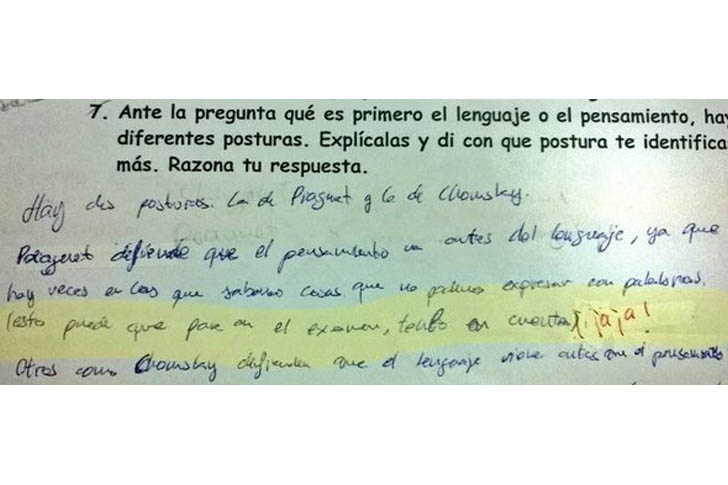 7. Ante la pregunta qué es primero el lenguaje o el pensamiento, hay
diferentes posturas. Explícalas y di con que postura te identifica
más. Razona tu respuesta.
Hay dos posturas. La de Piagnet y la de Chomsky.
defiende que el pensamiento va antes del lenguaje, ya que
hay veces en las que sabemos cosas que no podemos expresar con palabras.
(esto puede que pase en el examen, tenlo en cuenta) ¡jaja!
Otros como Chomsky defienden que el lenguaje viene antes que el pensamiento